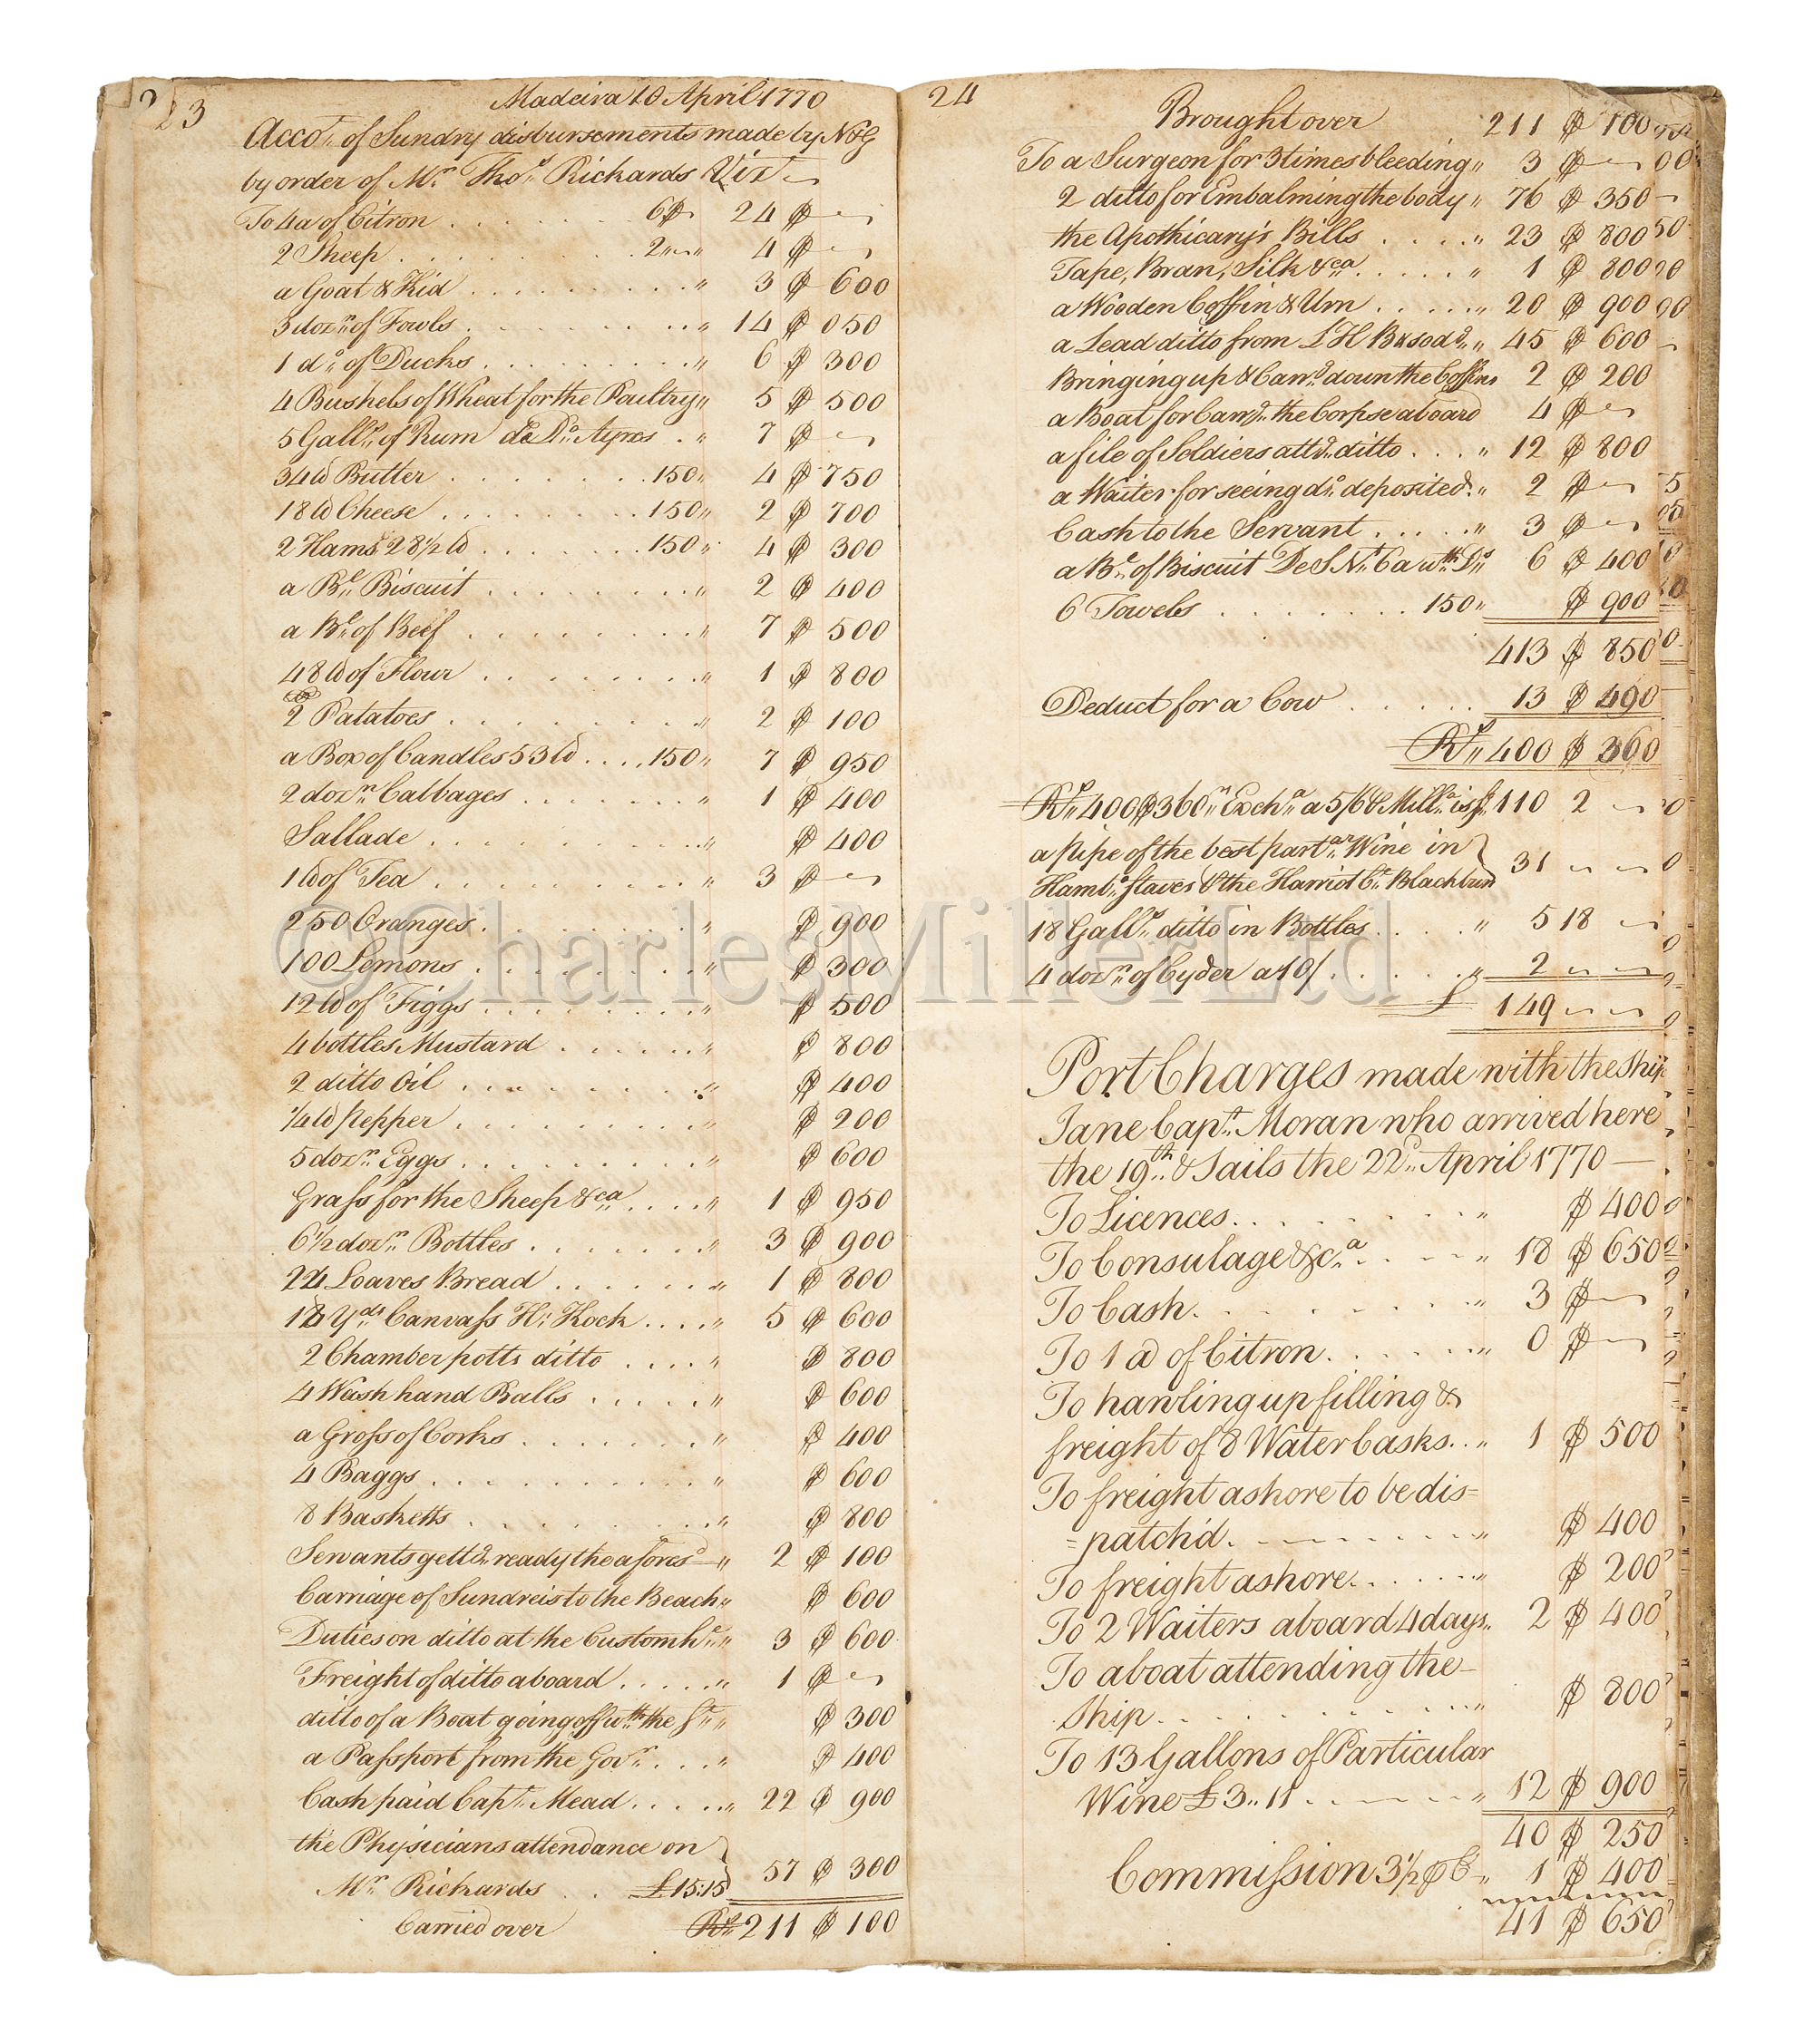 23
Madeira 10 April 1770
Acco.t of Sundry disbursements made by N&G
by order of M.r Tho.s Richards Viz.t
To 4 a of Citron . . . . . 6$ 24 $ —
2 Sheep . . . . . 2 " — " 4 $ —
a Goat & Kid . . . . . " 3 $ 600
3 doz.n of Fowls . . . . . " 14 $ 050
1 d.o of Ducks . . . . . " 6 $ 300
4 Bushels of Wheat for the Poultry " 5 $ 500
5 Gall.s of Rum de D.o Ayres . " 7 $ —
34 lb Butter . . . . . 150 " 4 $ 750
18 lb Cheese . . . . . 150 " 2 $ 700
2 Hams 28 1/2 lb . . . . . 150 " 4 $ 300
a B.l Biscuit . . . . . " 2 $ 400
a B.l of Beif . . . . . " 7 $ 500
48 lb of Flour . . . . . " 1 $ 800
2 Patatoes . . . . . " 2 $ 100
a Box of Candles 53 lb . . . . 150 " 7 $ 950
2 doz.n Cabbages . . . . . " 1 $ 400
Sallade . . . . . " $ 400
1 lb of Tea . . . . . " 3 $ —
250 Oranges . . . . . " $ 900
100 Lemons . . . . . " $ 300
12 lb of Figgs . . . . . " $ 500
4 bottles Mustard . . . . . " $ 800
2 ditto Oil . . . . . " $ 400
1/4 lb pepper . . . . . " $ 200
5 doz.n Eggs . . . . . " $ 600
Grass for the Sheep &ca . . . . " 1 $ 950
6 1/2 doz.n Bottles . . . . . " 3 $ 900
24 Loaves Bread . . . . . " 1 $ 800
18 Y.ds Canvass H: Kock . . . . " 5 $ 600
2 Chamber potts ditto . . . . " $ 800
4 Wash hand Balls . . . . . " $ 600
a Gross of Corks . . . . . " $ 400
4 Baggs . . . . . " $ 600
8 Basketts . . . . . " $ 800
Servants gett.g ready the afores.d " 2 $ 100
Carriage of Sundreis to the Beach " $ 600
Duties on ditto at the Customh.e " 3 $ 600
Freight of ditto aboard . . . . . " 1 $ —
ditto of a Boat going off w.th the S.t " $ 300
a Passport from the Gov.r . . . . " $ 400
Cash paid Cap.t Mead . . . . . " 22 $ 900
the Physicians attendance on
M.r Richards . . £15:15 } 57 $ 300
Carried over R.s 211 $ 100
24
Brought over 211 $ 100
To a Surgeon for 3 times bleeding " 3 $ —
2 ditto for Embalming the body " 76 $ 350
the Apothicary's Bills . . . . " 23 $ 800
Tape, Bran, Silk &ca . . . . . " 1 $ 800
a Wooden Coffin & Urn . . . . . " 20 $ 900
a Lead ditto from " 45 $ 600
Bringing up & Carr.g down the Coffins 2 $ 200
a Boat for Carr.g the Corpse aboard 4 $ —
a file of Soldiers att.g ditto . . . " 12 $ 800
a Waiter for seeing d.o deposited " 2 $ —
Cash to the Servant . . . . . " 3 $ —
a B.l of Biscuit 6 $ 400
6 Towels . . . . . 150 " $ 900
413 $ 850
Deduct for a Cow . . . . . 13 $ 490
R.s 400 $ 360
R.s 400 $ 360 Exch.e a 5/6 P Mill.s is £ 110 2 —
a pipe of the best part.ar Wine in
Hamb.o staves P the Harriot C.t Blackburn } 31 — —
18 Gall.s ditto in Bottles . . . . " 5 18 —
4 doz.n of Cyder a 10/ . . . . . " 2 — —
£ 149 — —
Port Charges made with the Ship
Jane Cap.t Moran who arrived here
the 19.th & Sails the 22.d April 1770 —
To Licences . . . . . " $ 400
To Consulage &c.a . . . . " 18 $ 650
To Cash . . . . . " 3 $ —
To 1 a of Citron . . . . . " 0 $ —
To hawling up filling &
freight of 8 Water Casks . . " 1 $ 500
To freight ashore to be dis=
=patch'd . . . . . " $ 400
To freight ashore . . . . . " $ 200
To 2 Waiters aboard 4 days " 2 $ 400
To a boat attending the
Ship . . . . . " $ 800
To 13 Gallons of Particular
Wine £3 " 11 . . . . . " 12 $ 900
40 $ 250
Commission 3 1/2 P C.t " 1 $ 400
41 $ 650
©Charles Miller Ltd